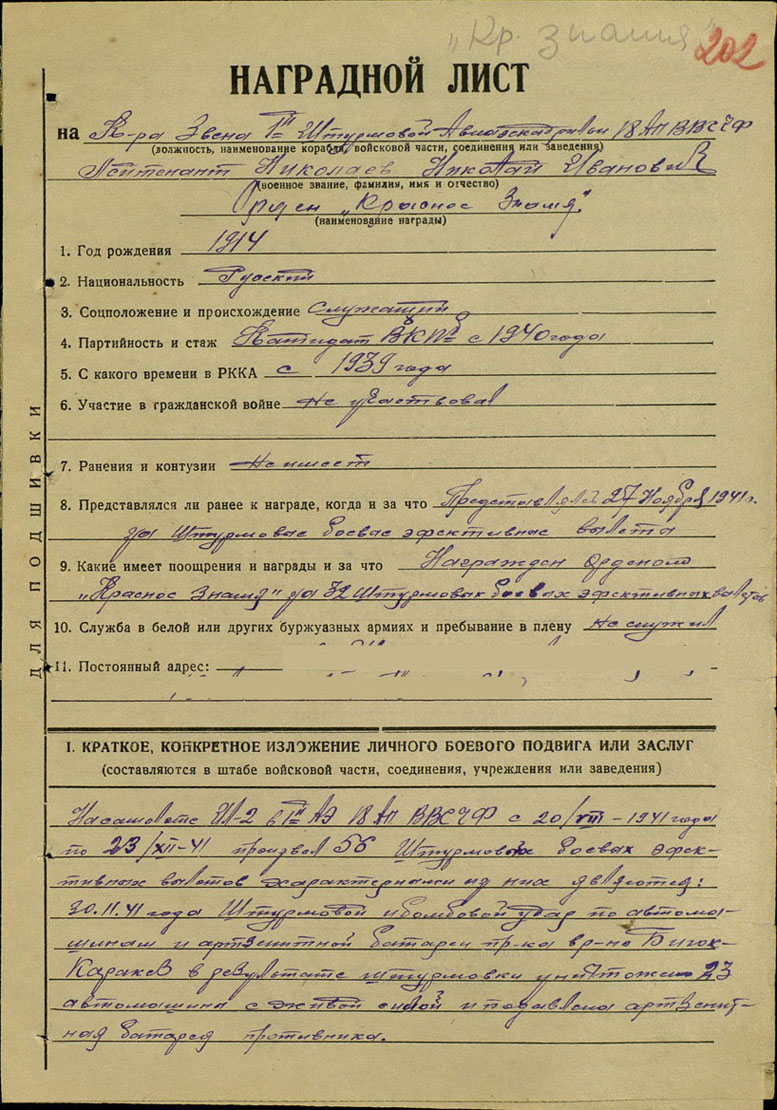 „Кр. знамя"
202
НАГРАДНОЙ ЛИСТ
на К-ра Звена 1й Штурмовой Авиаэскадрильи 18 АП ВВС ЧФ
(должность, наименование корабля, войсковой части, соединения или заведения)
Лейтенант Николаев Николай Иванович
(военное звание, фамилия, имя и отчество)
Орден „Красное Знамя".
(наименование награды)
1. Год рождения 1914
2. Национальность Русский
3. Соцположение и происхождение Служащий
4. Партийность и стаж Кандидат ВКП/б с 1940 года
5. С какого времени в РККА с 1939 года
6. Участие в гражданской войне не участвовал
7. Ранения и контузии Не имеет
8. Представлялся ли ранее к награде, когда и за что Представлялся 27 Ноября 1941 г.
за Штурмовые боевые эфективные вылета
9. Какие имеет поощрения и награды и за что Награжден Орденом
„Красное Знамя" за 32 Штурмовых боевых эфективных вылетов
10. Служба в белой или других буржуазных армиях и пребывание в плену Не служил
11. Постоянный адрес:
ДЛЯ ПОДШИВКИ
I. КРАТКОЕ, КОНКРЕТНОЕ ИЗЛОЖЕНИЕ ЛИЧНОГО БОЕВОГО ПОДВИГА ИЛИ ЗАСЛУГ
(составляются в штабе войсковой части, соединения, учреждения или заведения)
На самолете Ил-2 в 1й АЭ 18 АП ВВС ЧФ с 20/VIII-1941 года
по 23/XII-41 произвел 56 Штурмовых боевых эфек-
тивных вылетов характерными из них являются:
30.11.41 года Штурмовой и бомбовой удар по автома-
шинам и артзенитной батареи пр-ка в р-не Биюк-
Каракез в результате штурмовки уничтожено 23
автомашина с живой силой и подавлена артзенит-
ная батарея противника.